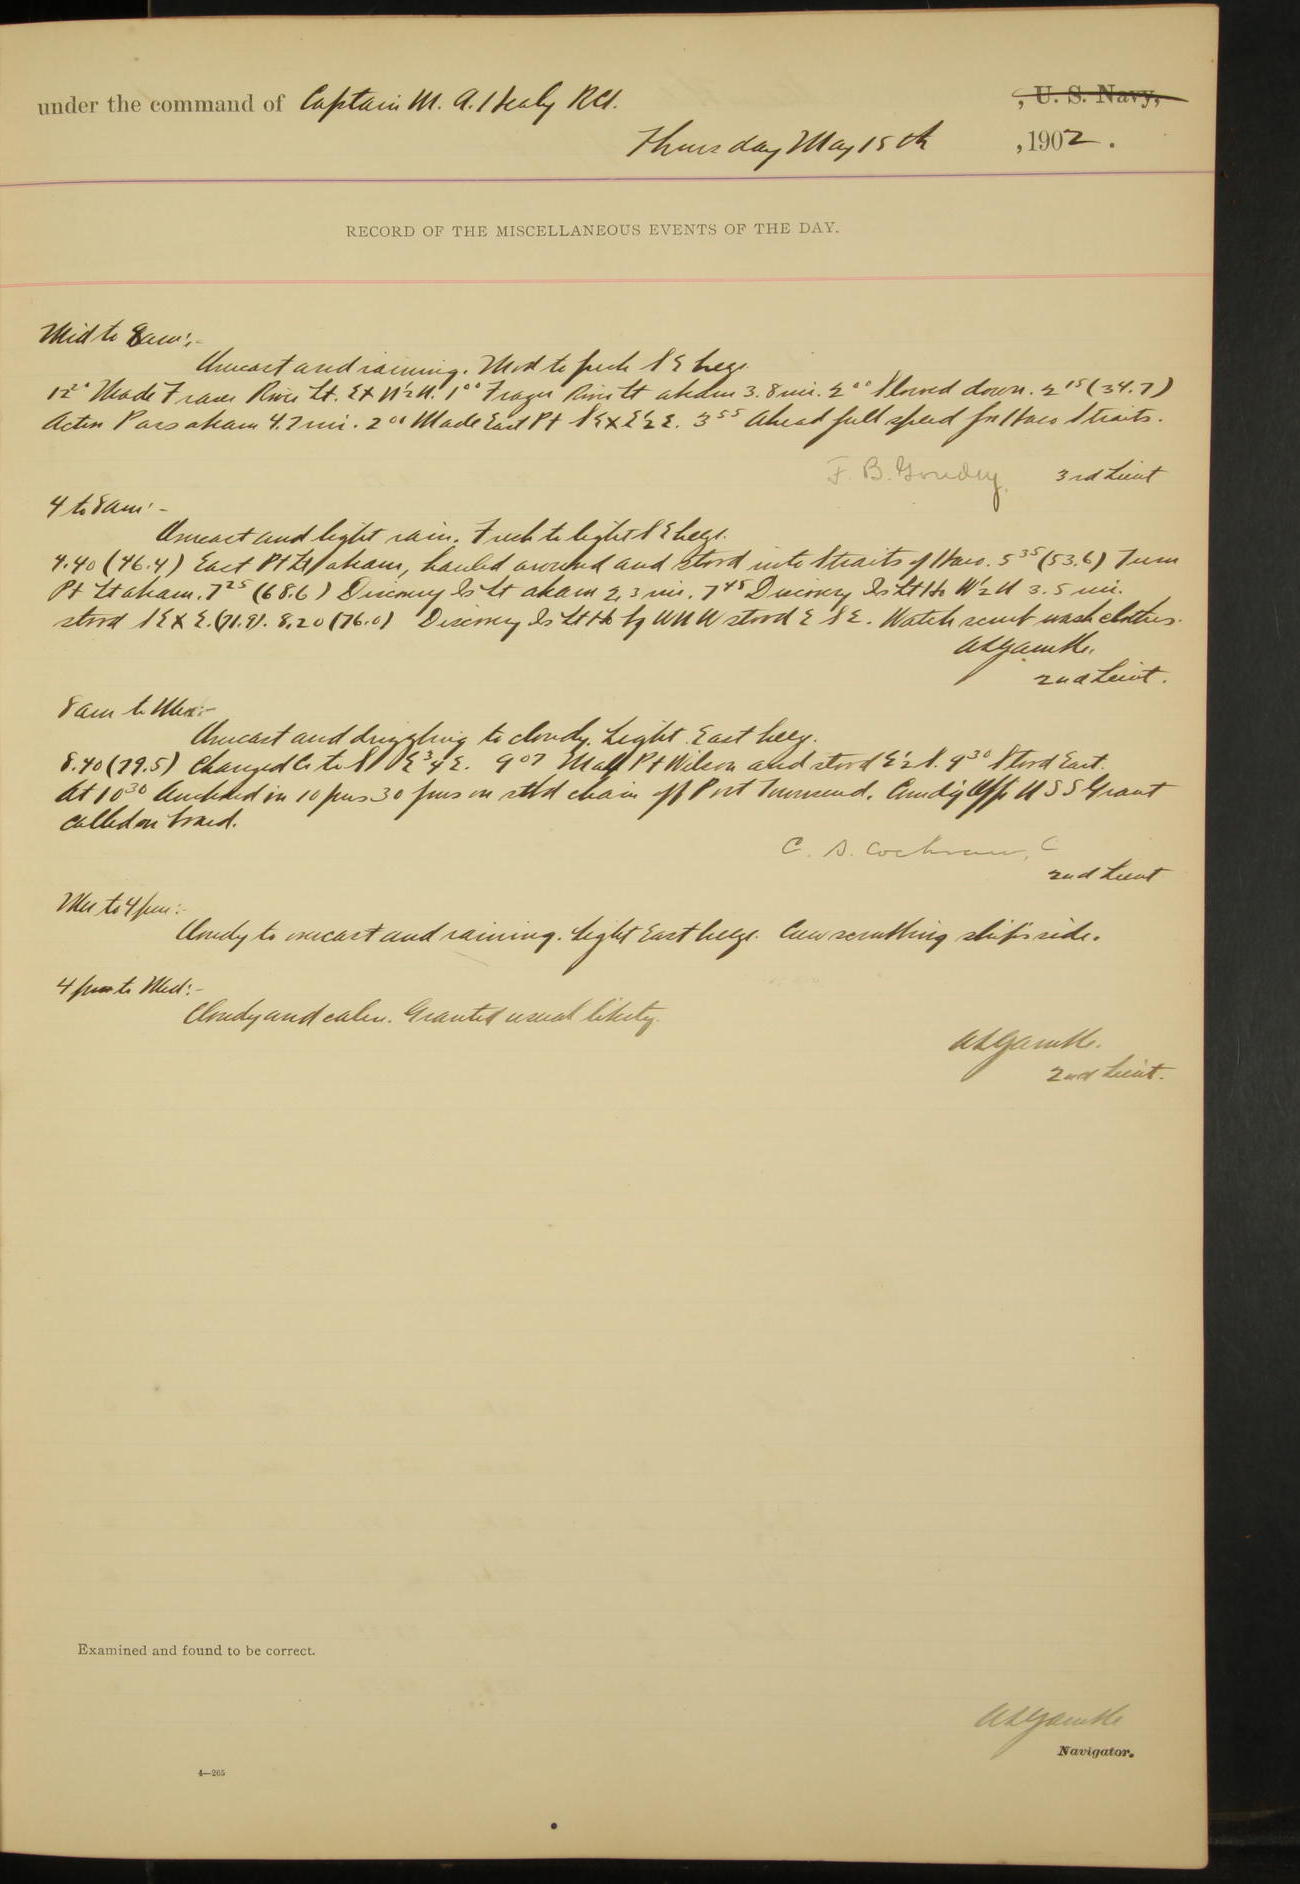 under the command of Captain M. A. Healy RCS. , U. S. Navy,
Thursday May 15th , 1902.
RECORD OF THE MISCELLANEOUS EVENTS OF THE DAY.
Mid to 8am:-
Overcast and raining. Mod to fresh SE breeze
12²⁰ Made Fraser River Lt. ExN½N. 1⁰⁰ Frazer River Lt abeam 3.8 mi. 2⁰⁰ Slowed down. 2¹⁵ (34.7)
Active Pass abeam 4.7 mi. 2⁰⁰ Made East Pt SExE½E. 3⁵⁵ Ahead full speed for Haro Straits.
F. B. Goudey. 3rd Lieut
4 to 8am:-
Overcast and light rain. Fresh to light SE breeze.
4.40 (46.4) East Pt Lt abeam, hauled around and stood into Straits of Haro. 5³⁵ (53.6) Turn
Pt Lt abeam. 7²⁵ (68.6) Discovery Is Lt abeam 2.3 mi. 7⁴⁵ Discovery Is Lt W½N 3.5 mi.
stood SExE. (71.9). 8.20 (76.0) Discovery Is Lt by WNW stood ESE. Watch scrub wash clothes.
ALGamble.
2nd Lieut.
8am to Mer:-
Overcast and drizzling to cloudy. Light East breeze.
8.40 (79.5) Changed C. to SE¾E. 9⁰⁷ Made Pt Wilson and stood E½S. 9³⁰ Stood East.
At 10³⁰ Anchored in 10 fms 30 fms on stbd chain off Port Townsend. Comdg Off. USS Grant
called on board.
C. S. Cochran,
2nd Lieut
Mer to 4 pm:-
Cloudy to overcast and raining. Light East breeze. Crew scrubbing ship's side.
4 pm to Mid:-
Cloudy and calm. Granted usual liberty.
ALGamble.
2nd Lieut.
Examined and found to be correct.
ALGamble
Navigator.
4—265